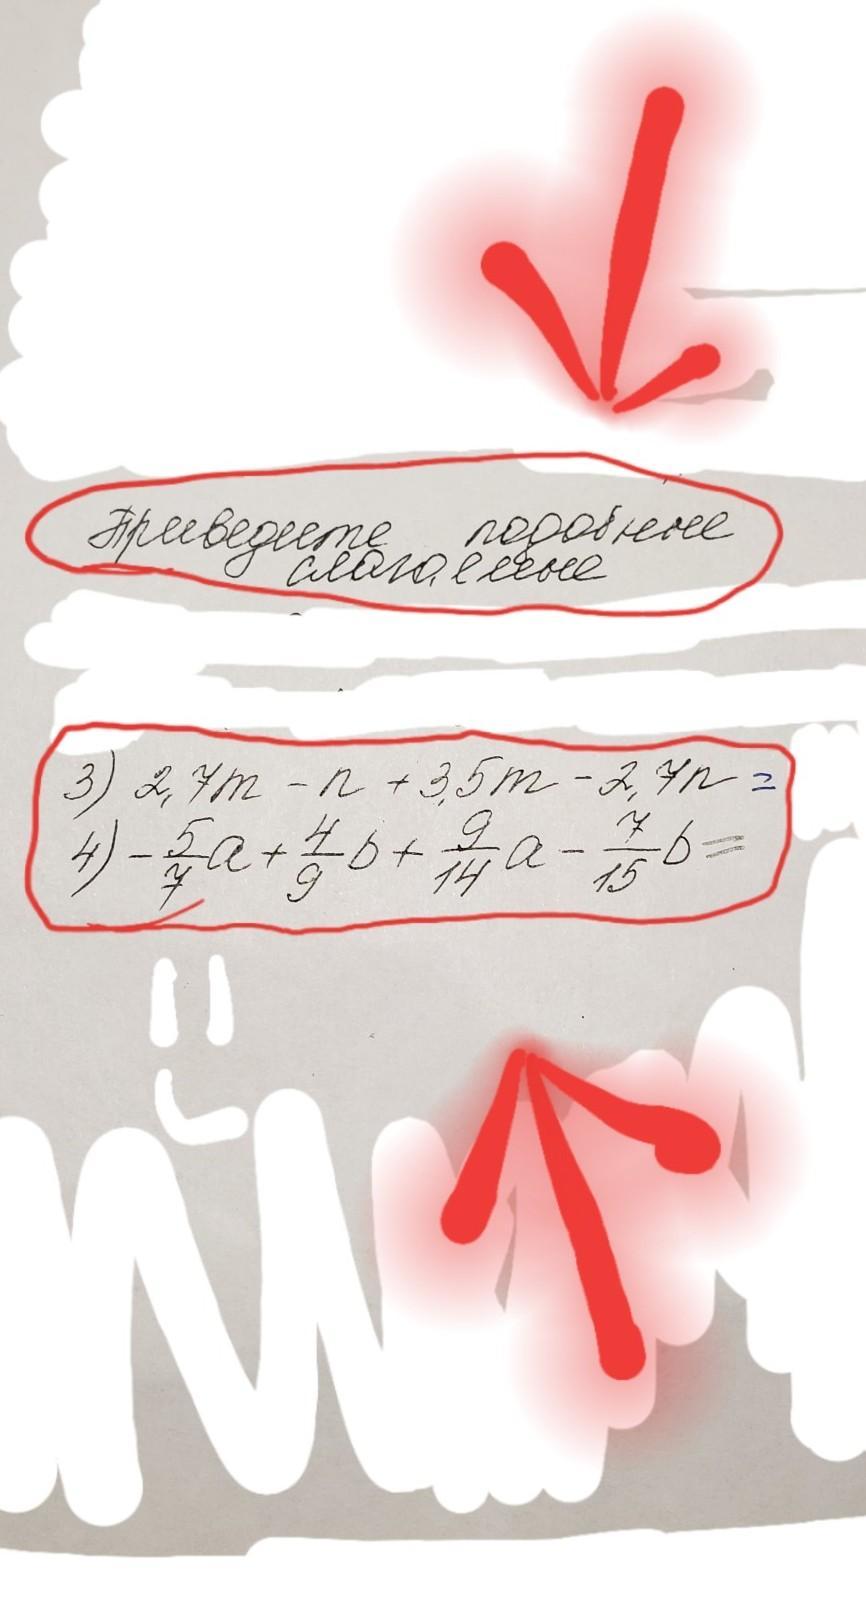 Приведите подобные
слагаемые
3) 2,7m - n + 3,5m - 2,7n =
4) - 5/7 a + 4/9 b + 9/14 a - 7/15 b =